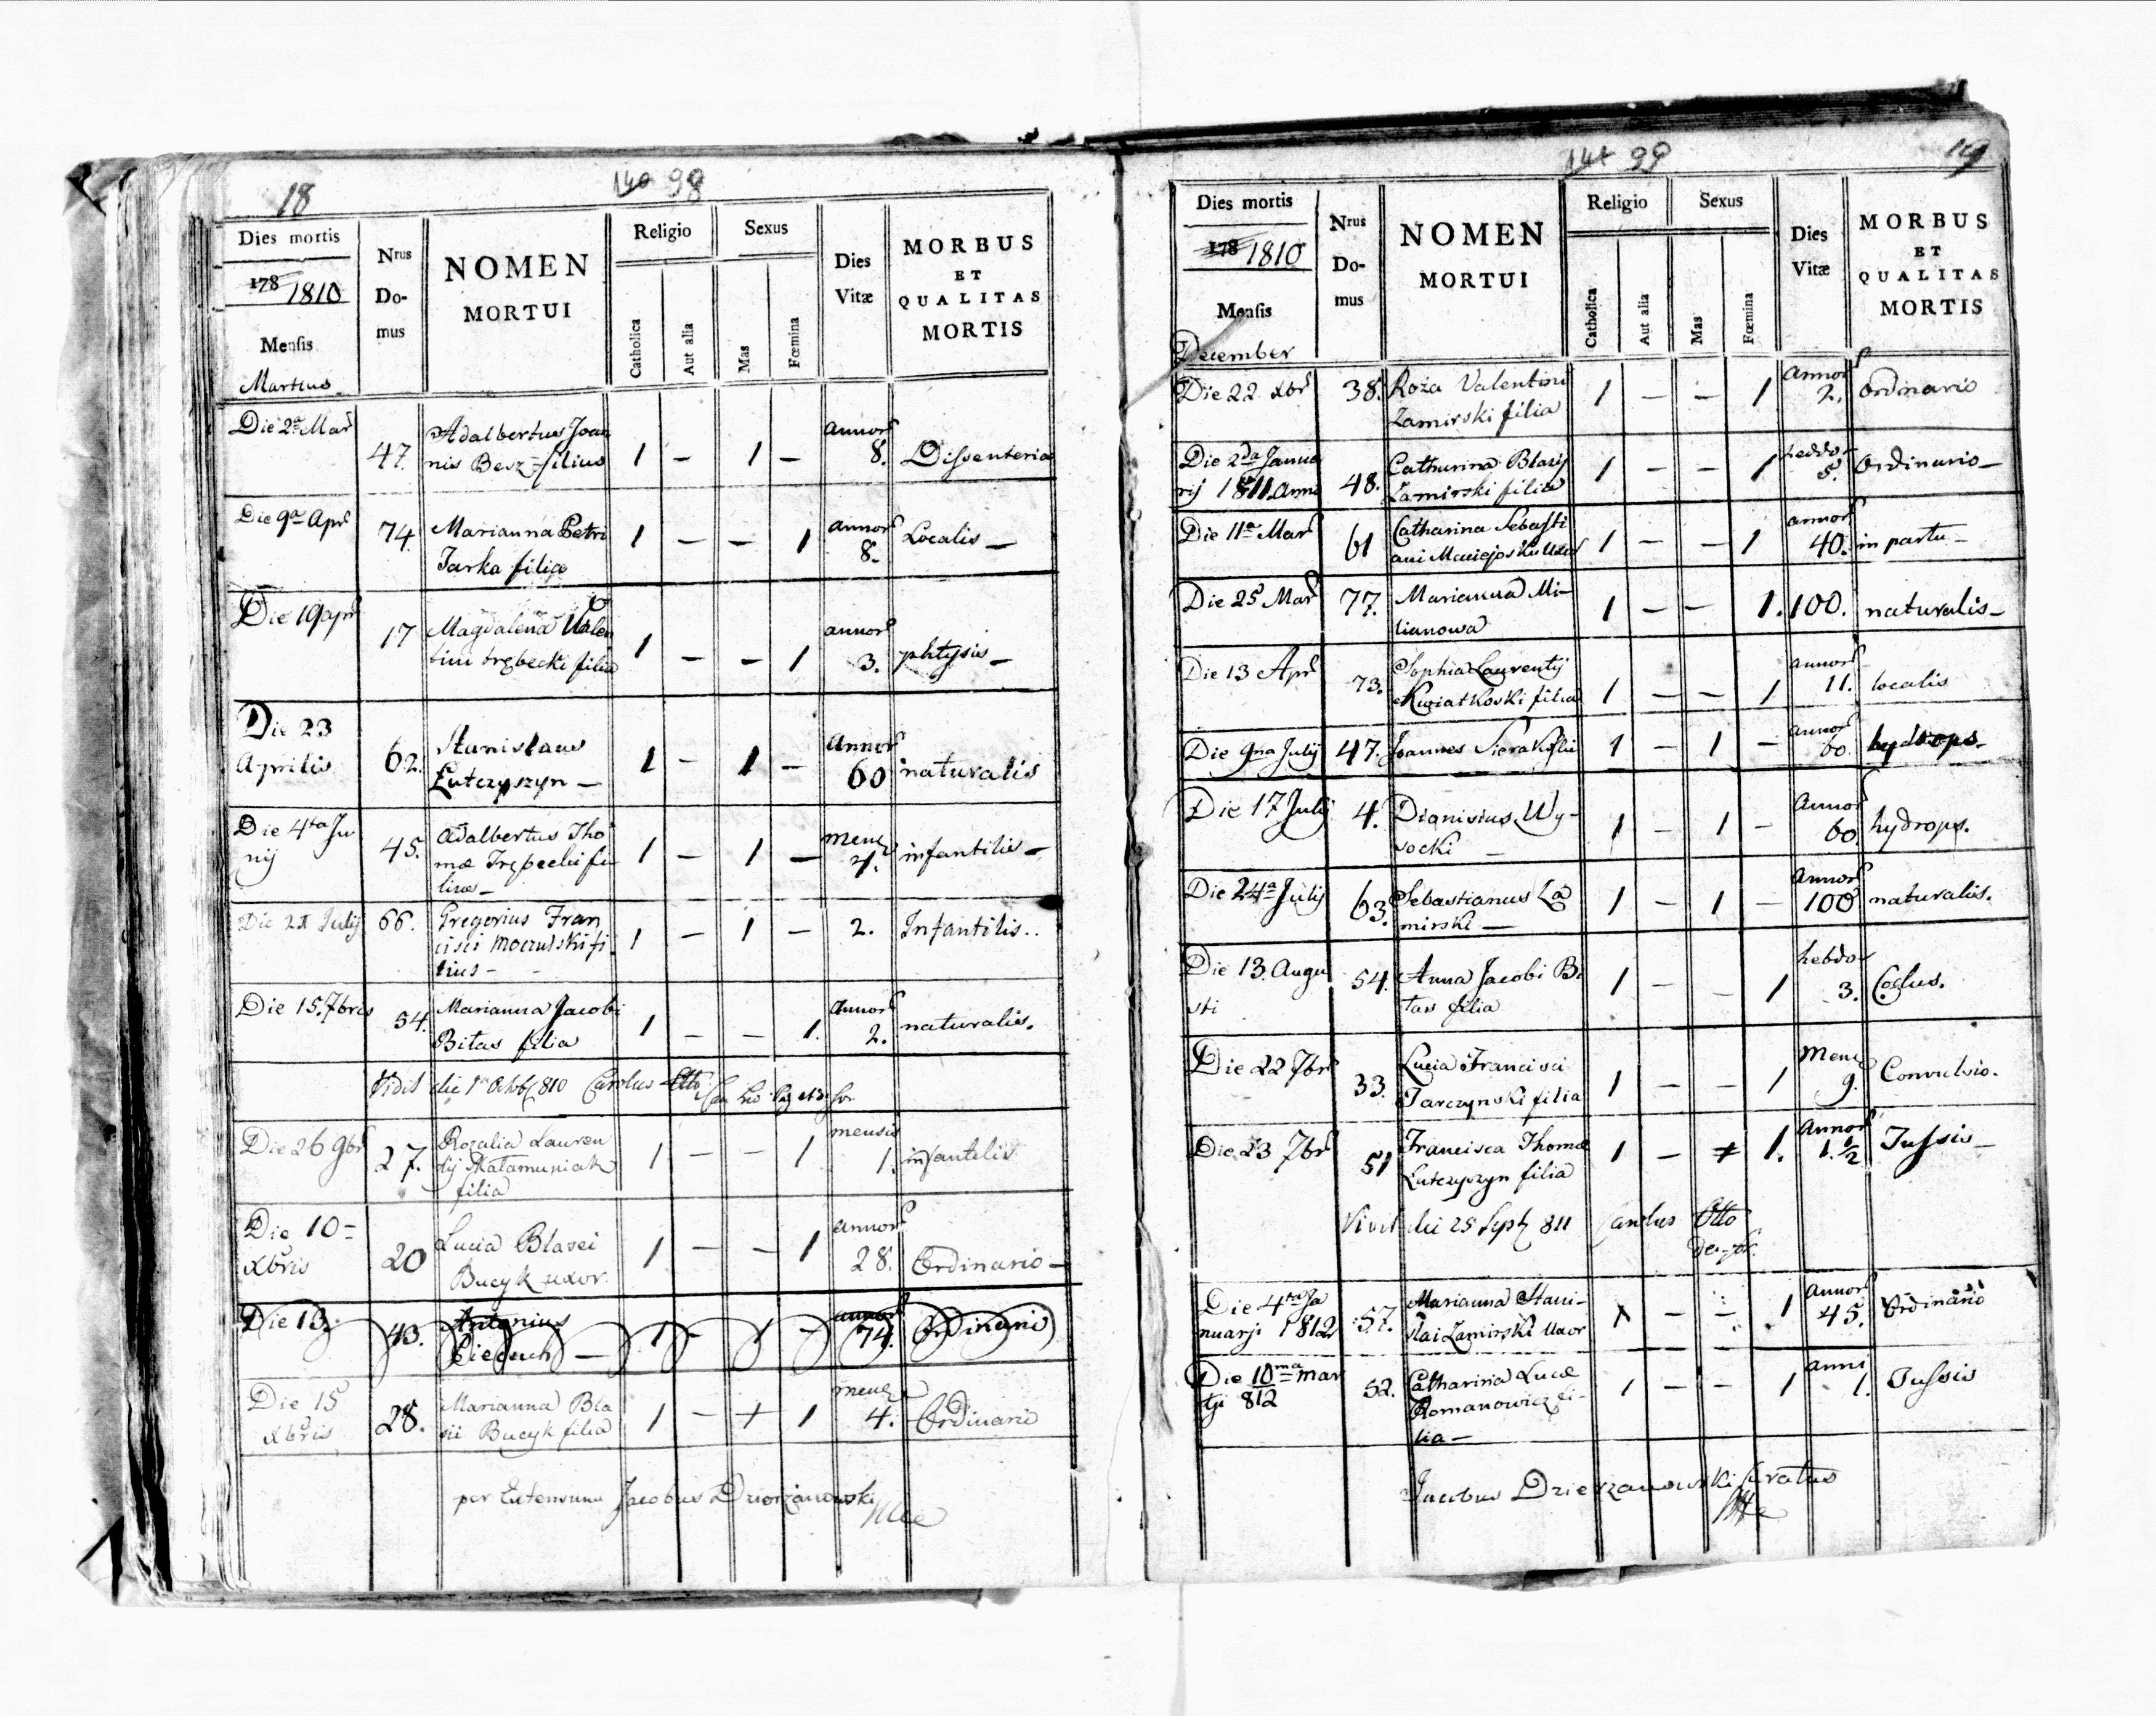 18
140 98
Dies mortis
178 1810
Mensis
Martius
Nrus
Do-
mus
NOMEN
MORTUI
Religio
Catholica
Aut alia
Sexus
Mas
Fœmina
Dies
Vitæ
MORBUS
ET
QUALITAS
MORTIS
Die 2a Mar
47.
Adalbertus Joan
nis Besz filius
1 – 1 –
annor
8.
Dissenteria
Die 9a Apr
74.
Marianna Petri
Jarka filia
1 – – 1
annor
8.
Localis –
Die 19 apr
17
Magdalena Valen
tini Trębecki filia
1 – – 1
annor
3.
phtysis –
Die 23
Aprilis
62.
Stanislaus
Łutczyszyn –
1 – 1 –
Annor
60
naturalis
Die 4ta Ju
nij
45.
Adalbertus Tho
mæ Trębecki fi
lius –
1 – 1 –
menz
infantilis –
Julij
66.
Gregorius Fran
cisci Moczulski fi
lius –
1 – 1 –
2.
Infantilis..
Die 15. 7bris
54.
Marianna Jacobi
Bitas filia
1 – – 1.
Annor
2.
naturalis.
Vidit die 1a Octob 810 Carolus Otto
Die 26 9br
27.
Rozalia Lauren
tij Matamuniak
filia
1 – – 1
mensis
1.
infantilis
Die 10 –
Xbris
20
Lucia Blasei
Bucyk uxor.
1 – – 1
annor
28.
Ordinario –
Die 13.
43.
Antonius
Piecuch –
1 – 1 –
annor
74.
Ordinario
Die 15
Xbris
28.
Marianna Bla
sii Bucyk filia
1 – + 1
menz
4.
Ordinario
per Extensum Jacobus Dzierżanowski
141 99
19
Dies mortis
178 1810
Mensis
December
Nrus
Do-
mus
NOMEN
MORTUI
Religio
Catholica
Aut alia
Sexus
Mas
Fœmina
Dies
Vitæ
MORBUS
ET
QUALITAS
MORTIS
Die 22 Xbr
38.
Roża Valentini
Zamirski filia
1 – – 1
Annor
2.
Ordinario
Die 2da Janua
rij 1811 Anni
48.
Catharina Blasij
Zamirski filia
1 – – 1
heddo
5.
Ordinario –
Die 11a Mar
61
Catharina Sebasti
ani Maciejoski Uxor
1 – – 1
annor
40.
in partu –
Die 25 Mar
77.
Marianna Mi-
lianowa
1 – – 1.
100.
naturalis –
Die 13 Apr
73.
Sophia Laurentij
Kwiatkoski filia
1 – – 1
annor
11.
localis
Die 9na Julij
47.
Joannes Sierakoski
1 – 1 –
annor
60.
hydrops.
Die 17 Julij
4.
Dionisius Wy-
socki –
1 – 1 –
Annor
60
hydrops.
Die 24a Julij
63.
Sebastianus Za
mirski –
1 – 1 –
Annor
100
naturalis.
Die 13. Augu
sti
54.
Anna Jacobi Bi
tas filia
1 – – 1
hebdo
3.
Die 22 7br
33.
Lucia Francisci
Tarczynski filia
1 – – 1
Menz
9.
Convulsio.
Die 23 7br
51
Francisca Thomæ
Lutczyszyn filia
1 – ≠ 1.
Annor
1. ½
Tussis –
Vidit die 25 Sept 811 Carolus Otto
Die 4ta Ja
nuarji 1812
57.
Marianna Stani-
slai Zamirski Uxor
1 – – 1
Annor
45.
Ordinario
Die 10ma mar
tji 812
52.
Catharina Lucæ
Romanowicz fi-
lia –
1 – – 1
anni
1.
Tussis
Jacobus Dzierzanowski Curatus